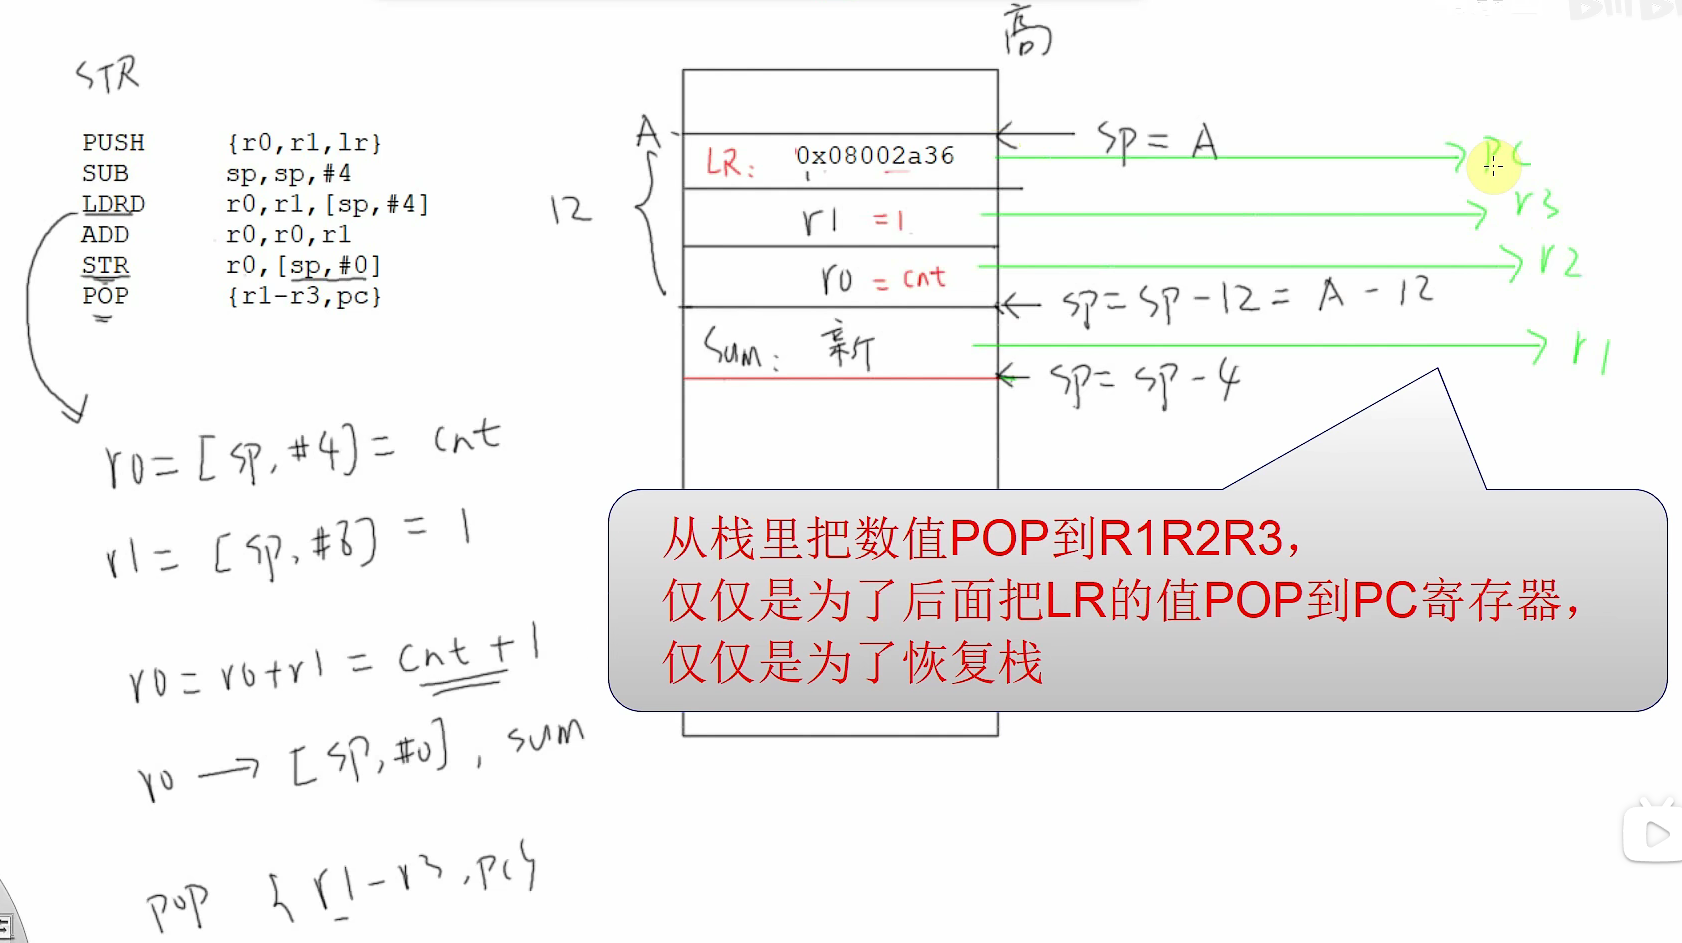 STR
PUSH {r0,r1,lr}
SUB sp,sp,#4
LDRD r0,r1,[sp,#4]
ADD r0,r0,r1
STR r0,[sp,#0]
POP {r1-r3,pc}
r0=[sp,#4]= cnt
r1=[sp,#8]=1
r0=r0+r1=cnt+1
r0→[sp,#0],sum
pop {r1-r3,pc}
高
A
sp=A
LR: 0x08002a36
PC
12
r1 =1
r3
r0 =cnt
r2
sp=sp-12=A-12
Sum: 新
r1
sp=sp-4
从栈里把数值POP到R1R2R3，
仅仅是为了后面把LR的值POP到PC寄存器，
仅仅是为了恢复栈